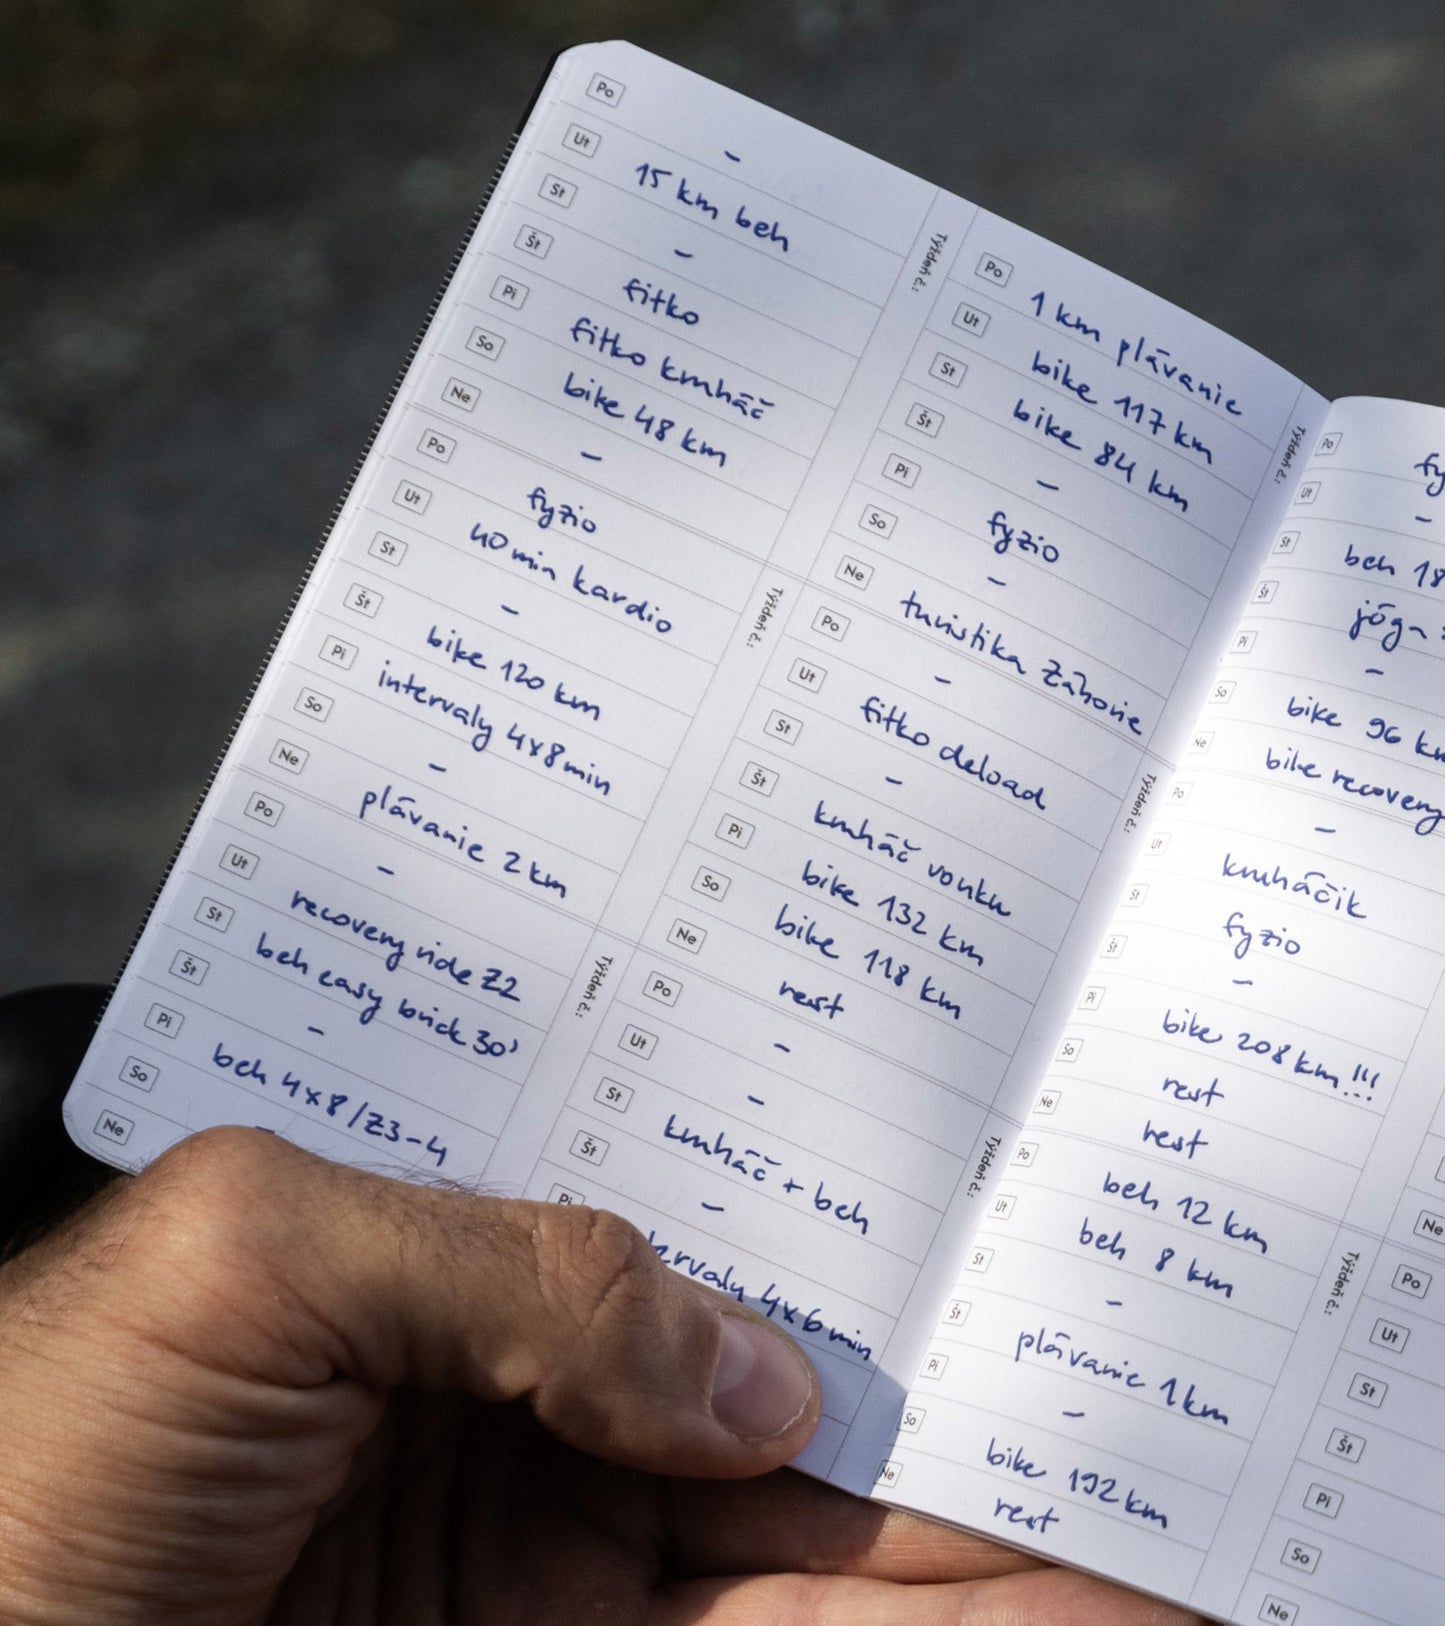 Po –
Ut 15 km beh
St –
Št fitko
Pi fitko kruháč
So bike 48 km
Ne –
Týždeň č.:
Po fyzio
Ut 40 min kardio
St –
Št bike 120 km
Pi intervaly 4x8min
So –
Ne plávanie 2km
Týždeň č.:
Po –
Ut recovery ride Z2
St beh easy brick 30'
Št –
Pi beh 4x8/Z3-4
So –
Ne
Týždeň č.:
Po 1 km plávanie
Ut bike 117 km
St bike 84 km
Št –
Pi fyzio
So –
Ne turistika Záhorie
Týždeň č.:
Po –
Ut fitko deload
St –
Št kruháč vonku
Pi bike 132 km
So bike 118 km
Ne rest
Týždeň č.:
Po –
Ut –
St kruháč + beh
Št –
Pi 4x6min
Týždeň č.:
Po
Ut –
St beh 18
Št jóga
Pi –
So bike 96 km
Ne bike recovery
Po –
Ut kruháčik
St fyzio
Št –
Pi bike 208 km!!!
So rest
Ne rest
Po beh 12 km
Ut beh 8 km
St –
Št plávanie 1km
Pi –
So bike 192km
Ne rest
Týždeň č.:
Ne
Po
Ut
St
Št
Pi
So
Ne